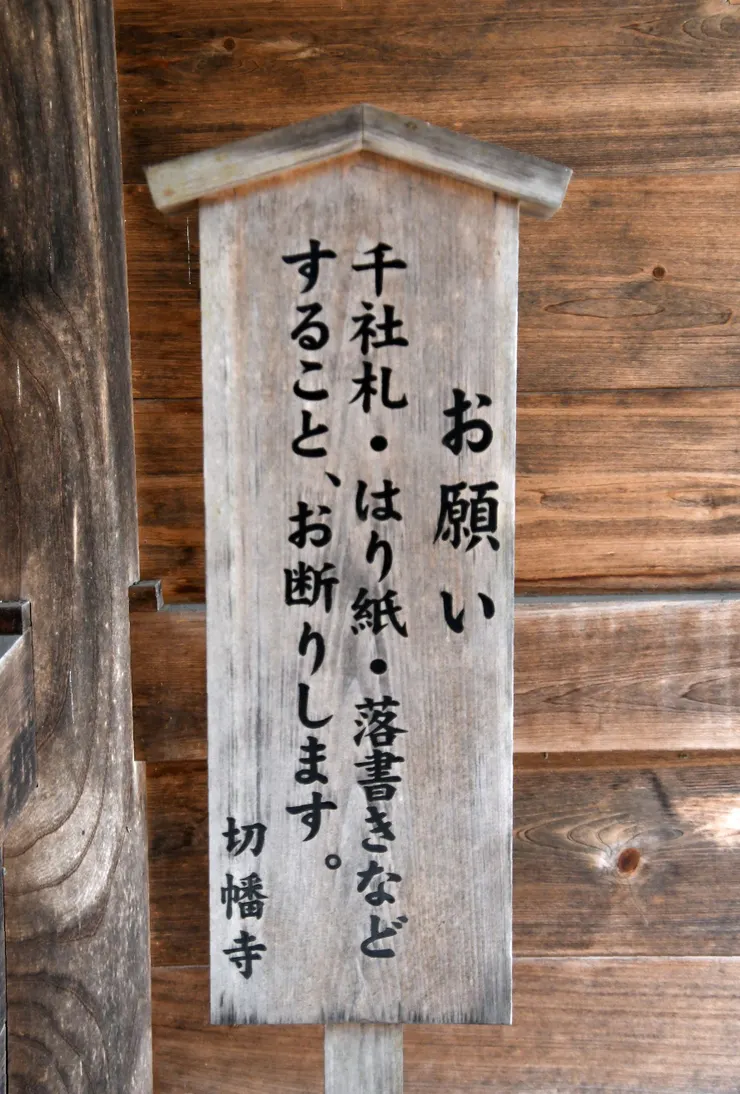 お願い
千社札・はり紙・落書きなど
すること、お断りします。
切幡寺